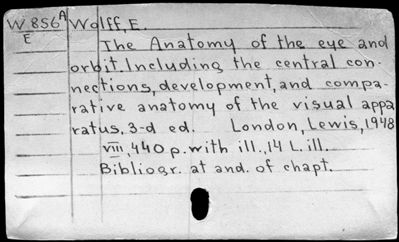 W 856A Wolff, E.
E
The Anatomy of the eye and
orbit. Including the central con-
nections, development, and compa-
rative anatomy of the visual appa
ratus, 3-d ed. London, Lewis, 1948
VIII, 440 p. with ill., 14 L. ill.
Bibliogr. at and. of chapt.